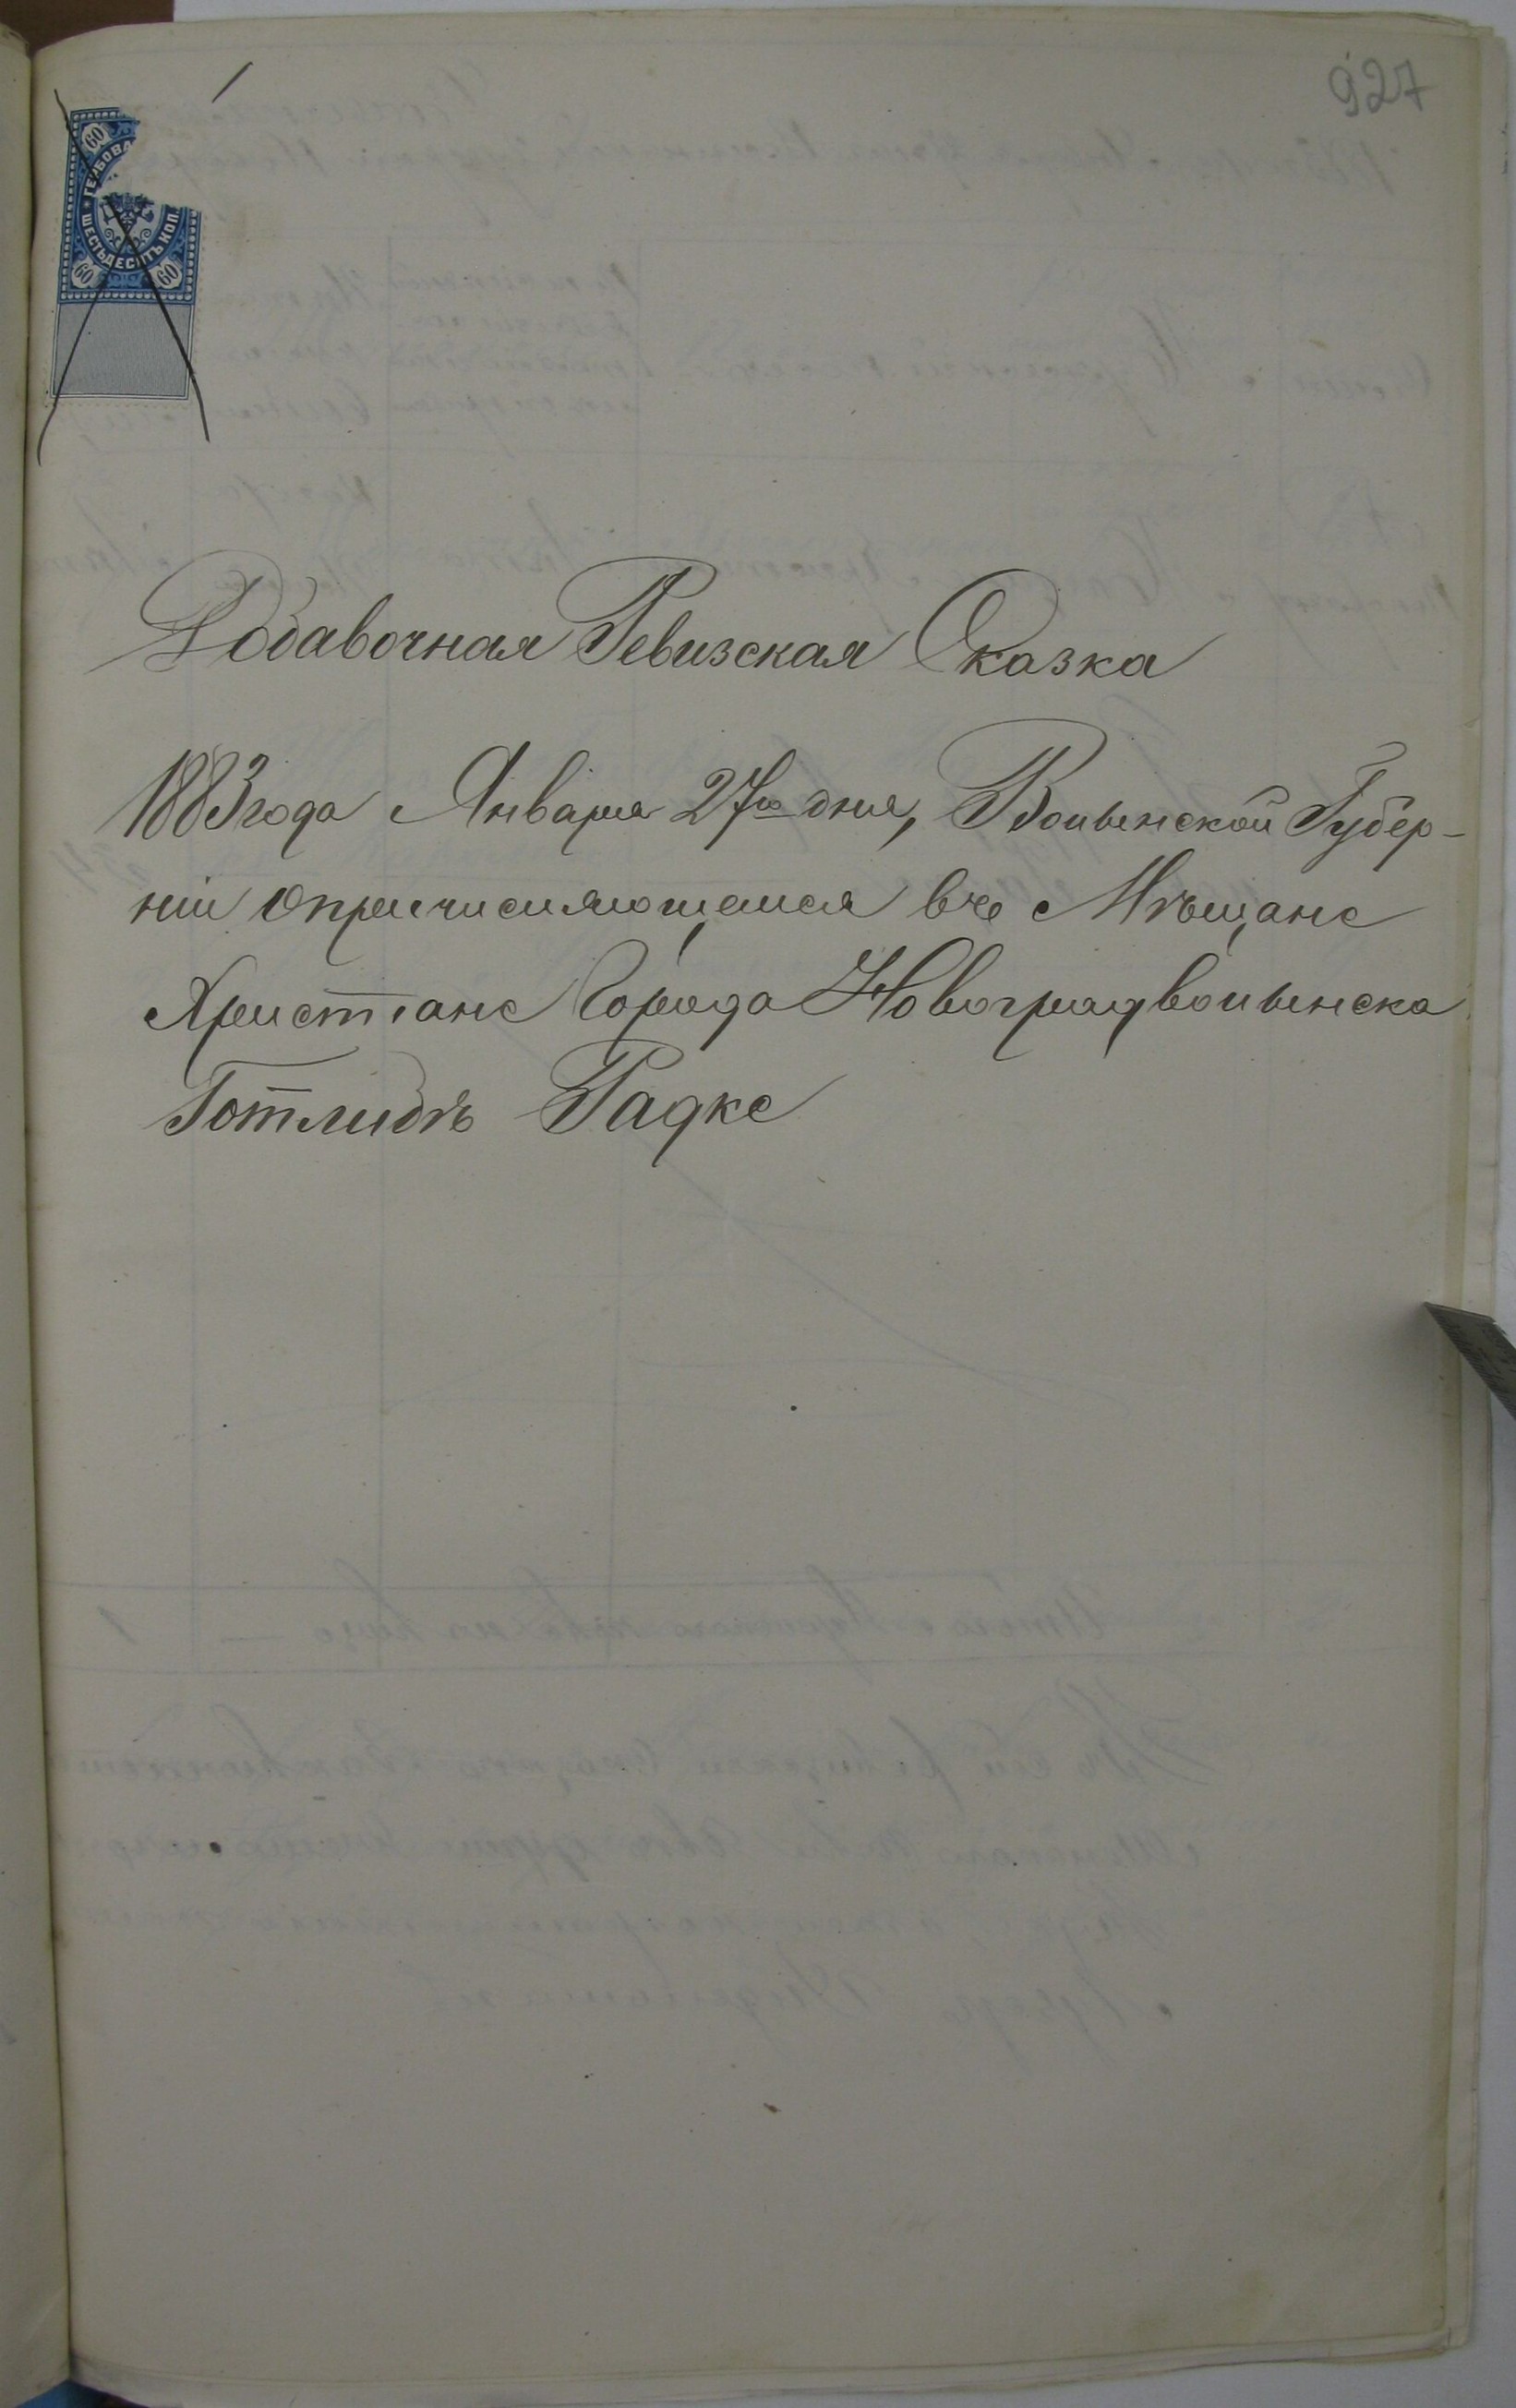 927
60
ГЕРБОВА
ШЕСТЬДЕСЯТЪ КОП.
60 60
Добавочная Ревизская Сказка
1883 года Января 27го дня, Волынской Губер-
ніи опричисляющемся вче Мѣщане
Христіане Города Новоградволынска
Готлибъ Радке